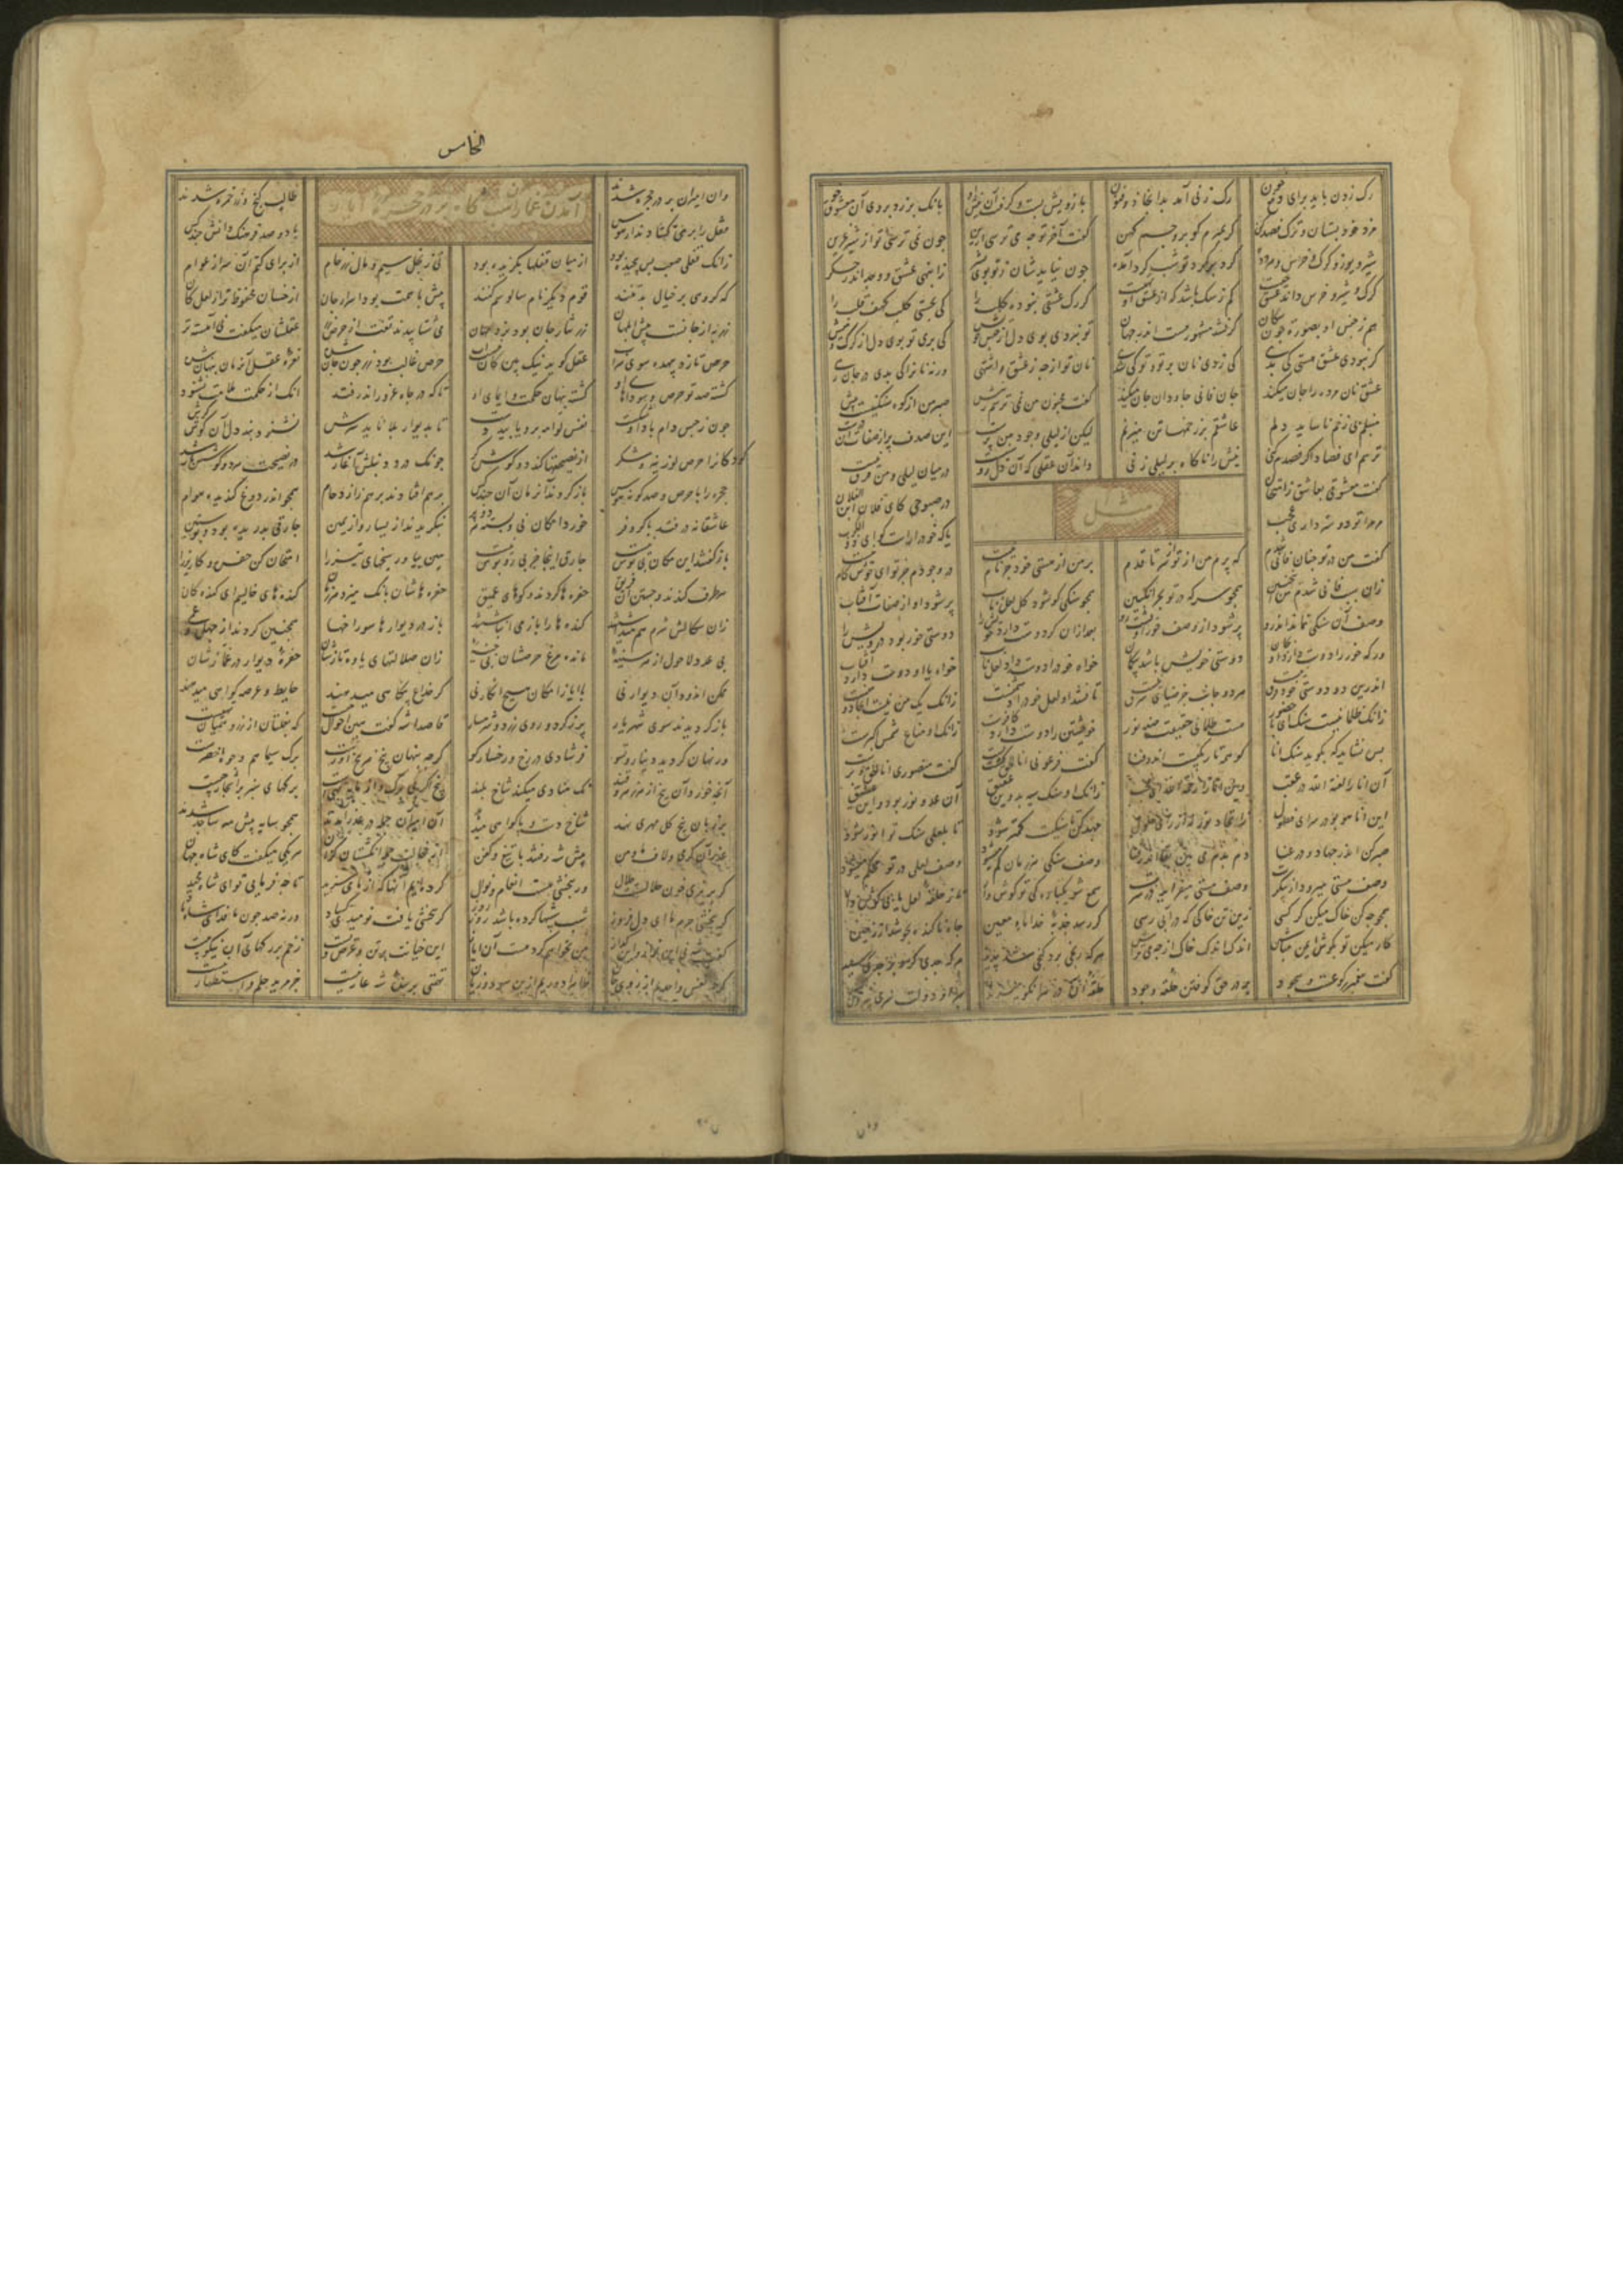 رک زدن باید برای دفع خون رک زنی آمد بدانجا ذوفنون بازویش بست و کرفت آن نیش او بانک بر زد بر وی آن معشوق جو
مزد خود بستان و ترک فصد کن کر بمیرم کو برو جسم کهن کفت آخر تو چه می ترسی ازین چون نمی ترسی تو از شیر عرین
شیر و یوز و کرک و خرس و هر دده کرد بر کرد تو شب کرد آمده چون نیاید شان ز تو بوی بشر ز انبهی عشق و وجد اندر جکر
کرک و شیر و خرس داند عشق چیست کم ز سک باشد که از عشق او کر رک عشقی نبودی کلب را کی بجستی کلب کهف قلب را
هم ز جنس او بصورت چون سکان کر نشد مشهور هست اندر جهان تو نبردی بوی دل از جنس خویش کی بری تو بوی دل از کرک و میش
کر نبودی عشق هستی کی بدی کی زدی نان بر تو و تو کی شدی نان تو از چه ز عشق و اشتهی ورنه نان را کی بدی در جان رهی
عشق نان مرده را جان میکند جان فانی جاودان جان میکند کفت مجنون من نمی ترسم ز نیش صبر من از کوه سنکین هست بیش
منبلم بی زخم ناساید دلم عاشقم بر زخمها تن میزنم لیکن از لیلی وجود من پرست این صدف پر از صفات آن درست
ترسم ای فصاد اکر فصدم کنی نیش را ناکاه بر لیلی زنی داند آن عقلی که آن دل روشنیست در میان لیلی و من فرق نیست
مثل
کفت معشوقی بعاشق ز امتحان در صبوحی کای فلان ابن الفلان
مر مرا تو دوستر داری عجب یا که خود را راست کو ای ذو الکرب
کفت من در تو چنان فانی شدم که پرم من از تو از سر تا قدم بر من از هستی خود جز نام نیست در وجودم جز تو ای خوش کام نیست
زان سبب فانی شدم من این چنین همچو سرکه در تو بحر انکبین همچو سنکی کو شود کل لعل ناب پر شود او از صفات آفتاب
وصف آن سنکی نماند اندرو پر شود از وصف خور او پشت و رو بعد از آن کر دوست دارد خویش را دوستی خور بود در خویش را
ور که خور را دوست دارد او بجان دوستی خویش باشد بی کمان خواه خود را دوست دارد لعل ناب خواه یا او دوست دارد آفتاب
اندرین دو دوستی خود فرق نیست هر دو جانب جز ضیای شرق نیست تا نشد او لعل خود را دشمنست زانک یک من نیست آنجا دو منست
زانک ظلمانیست سنک ای با حضور هست ظلمانی حقیقت ضد نور خویشتن را دوست دارد کافرست زانک او مناع شمس اکبرست
پس نشاید که بکوید سنک انا کو همه تاریکیست اندر فنا کفت فرعونی انا الحق کشت پست کفت منصوری انا الحق و برست
آن انا را لعنة الله در عقب وین انا را رحمة الله ای محب زانک او سنک سیه بد وین عقیق آن عدو نور بود و این عشیق
این انا هو بود در سر ای فضول ز اتحاد نور نه از رای حلول جهد کن تا سنکیت کمتر شود تا بلعلی سنک تو انور شود
صبر کن اندر جهاد و در عنا دم بدم می بین بقا اندر فنا وصف سنکی هر زمان کم میشود وصف لعلی در تو محکم میشود
وصف هستی میرود از پیکرت وصف مستی میفزاید در سرت سمع شو یکبارکی تو کوش وار تا ز حلقه لعل یابی کوشوار
همچو چه کن خاک میکن کر کسی زین تن خاکی که در آبی رسی کر رسد جذبه خدا ماء معین چاه ناکنده بجوشد از زمین
کار میکن تو بکوش آن مباش اندک اندک خاک چه را می تراش هر که رنجی برد کنجی شد پدید هر که جدی کرد در جدی رسید
کفت پیغمبر رکوعست و سجود بر در حق کوفتن حلقه وجود حلقه آن در هر آنکو میزند بهر او دولت سری بیرون کند
الخامس
آمدن غمازان نیم شب بر در حجره ایاز
وان امینان بر در حجره شدند طالب کنج و زر و خمره شدند
قفل را بر می کشادند از هوس با دو صد فرهنک و دانش چند کس
زانک قفلی صعب پس پیچیده بود از میان قفلها بکزیده بود نی ز بخل سیم و مال و زر خام از برای کتم آن سر از عوام
که کروهی بر خیال بد تنند قوم دیکر نام سالوسم کنند پیش با همت بود اسرار جان از خسان محفوظ تر از لعل کان
زر به از جانست پیش ابلهان زر نثار جان بود نزد شهان می شتابیدند تفت از حرص زر عقلشان میکفت نی آهسته تر
حرص تازد بیهده سوی سراب عقل کوید نیک بین کان نیست آب حرص غالب بود و زر چون جان شده نعره عقل آن زمان پنهان شده
کشته صد تو حرص و سوداهای او کشته پنهان حکمت و ایمای او تا که در چاه غرور اندر فتد آنکه از حکمت ملامت نشنود
چون ز حبس دام باد او شکست نفس لوامه برو یابید دست تا بدیوار بلا ناید سرش نشنود پند دل آن کوش کرش
کودکان را حرص لوزینه و شکر از نصیحتها کند دو کوش کر چونک درد دنبلش آغاز شد در نصیحت هر دو کوشش باز شد
حجره را با حرص و صد کونه هوس باز کردند آن زمان آن چند کس برهم افتادند از در ز ازدحام همچو اندر دوغ کندیده هوام
عاشقانه در فتد با کر و فر خورد امکان نی و بسته هر دو پر بنکریدند از یسار و از یمین چارقی بدریده بود و پوستین
باز کفتند این مکان بی نوش نیست چارق اینجا جز پی روپوش نیست هین بیاور سیخهای تیز را امتحان کن حفره و کاریز را
هر طرف کندند و جستند آن فریق حفره ها کردند و کوهای عمیق حفره هاشان بانک میزد آن زمان کنده های خالییم ای کندکان
زان سکالش شرم هم میداشتند کنده ها را باز می انباشتند باز در دیوارها سوراخها همچنین کردند از جهل و عمی
بی عدد لاحول در هر سینه مانده مرغ حرصشان بی چینه زان ضلالتهای یاوه تازشان حفره دیوار و در غمازشان
ممکن اندود آن دیوار نی با ایاز امکان هیچ انکار نی کر خداع بی کناهی میدهند حایط و عرصه کواهی میدهند
باز کردیدند سوی شهریار پر ز کرد و روی زرد و شرمسار قاصدا شه کفت هین احوال چیست که بغلتان از زر و همیان تهیست
ور نهان کردید دینار و تسو فر شادی در رخ و رخسار کو کرچه پنهان بیخ هر بیخ آورست برک سیماهم وجوهم اخضرست
آنچه خورد آن بیخ از زهر و ز قند نک منادی میکند شاخ بلند بیخ اکر بی برک و از مایه تهیست برکهای سبز بر اشجار چیست
بر زبان بیخ کل مهری نهد شاخ دست و پا کواهی میدهد آن امینان جمله در عذر آمدند همچو سایه پیش مه ساجد شدند
عذر آن کرمی و لاف ما و من پیش شه رفتند با تیغ و کفن از خجالت جمله انکشتان کزان هر یکی میکفت کای شاه جهان
کر بریزی خون حلالستت حلال ور ببخشی هست انعام و نوال کرده ایم آنها که از ما می سزید تا چه فرمایی تو ای شاه مجید
کر ببخشی جرم ما ای دل فروز شب شبیها کرده باشد روز روز کر ببخشی یافت نومیدی کشاد ورنه صد چون ما فدای شاه باد
کفت شه نی این نواز و این کداز من نخواهم کرد هست آن ایاز این جنایت بر تن و عرض ویست زخم بر رکهای آن نیکو پیست
کرچه نفس واحدیم از روی جان ظاهرا دورم ازین سود و زیان تهمتی بر بنده شه عار نیست جز مزید حلم و استظهار نیست